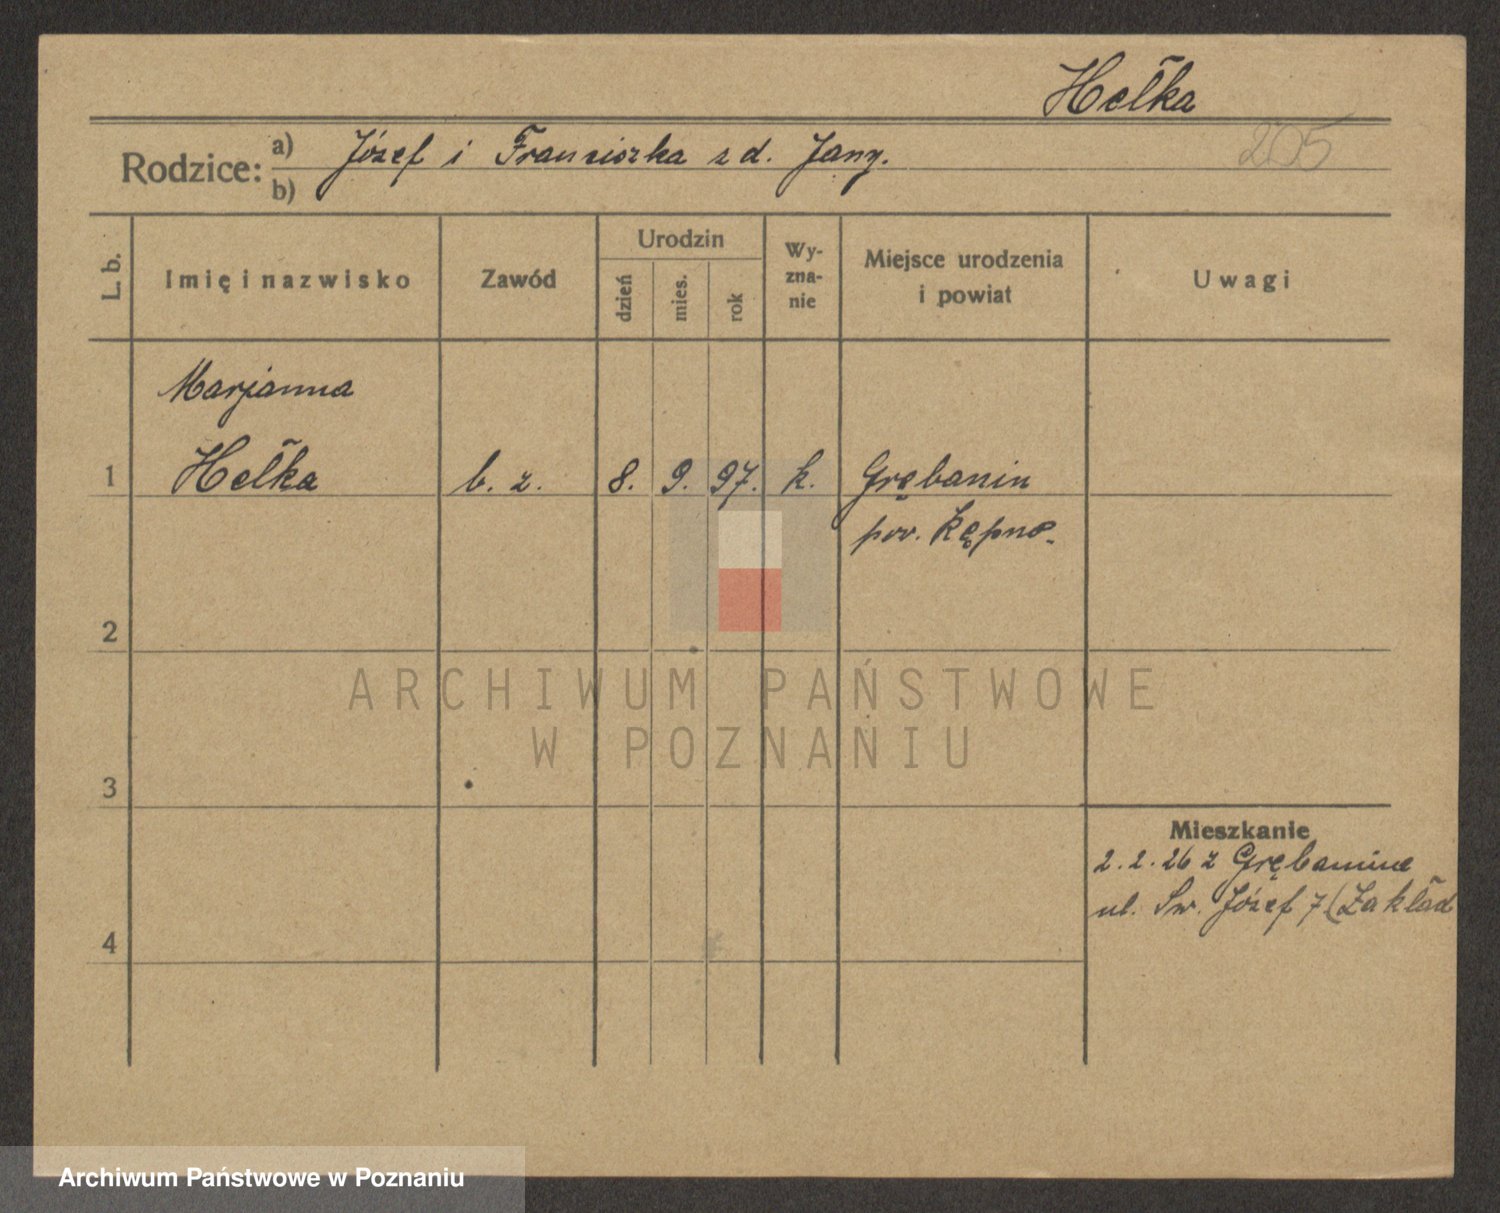 Hełka
205
Rodzice: a) Józef i Franciszka z d. Jany.
b)
L. b.
Imię i nazwisko
Zawód
Urodzin
dzień
mies.
rok
Wy-
zna-
nie
Miejsce urodzenia
i powiat
Uwagi
Marjanna
1 Hełka b. z. 8. 9. 97. k. Grębanin
pow. Kępno.
2
ARCHIWUM PAŃSTWOWE
W POZNANIU
3
Mieszkanie
2.2.26 z Grębanina
ul. Św. Józef 7 (Zakład
4
Archiwum Państwowe w Poznaniu